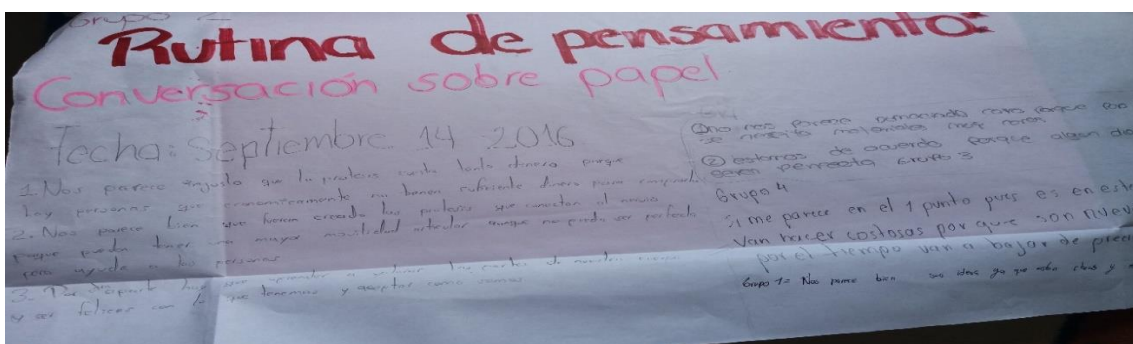 Grupo 2
Rutina de pensamiento:
Conversación sobre papel
Fecha: Septiembre 14 2016
1. Nos parece injusto que la protesis cueste tanto dinero porque
hay personas que economicamente no tienen suficiente dinero para comprarla
2. Nos parece bien que fueron creadas las protesis que conectan al
porque pueden tener una mayor movilidad articular aunque no pueda ser perfecta
pero ayuda a las personas
3. hay que aprender a valorar las partes de nuestro cuerpo
y ser felices con lo que tenemos y aceptar como somos
① no nos parece caro porque
se necesita materiales muy caros
② estamos de acuerdo porque algun dia
seran perfecta Grupo 3
Grupo 4
si me parece en el 1 punto pues es en este
van hacer costosas por que son nuev
por el tiempo van a bajar de preci
Grupo 1= Nos parece bien sus ideas ya que estan claras y